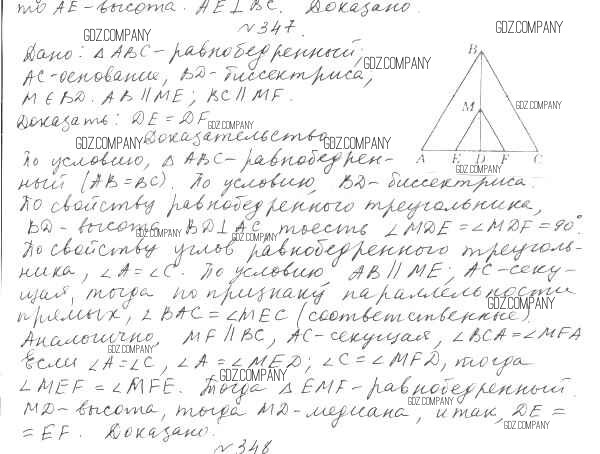 то AE-высота. AE⊥BC. Доказано.
GDZ.COMPANY
GDZ.COMPANY
№347.
Дано: △ABC-равнобедренный;
GDZ.COMPANY
AC-основание, BD-биссектриса,
M∈BD. AB∥ME; BC∥MF.
GDZ.COMPANY
Доказать: DE=DF.
GDZ.COMPANY
B
M
A E D F C
GDZ.COMPANY
GDZ.COMPANY
Доказательство
GDZ.COMPANY
По условию, △ABC-равнобедрен-
ный (AB=BC). По условию, BD-биссектриса.
GDZ.COMPANY
По свойству равнобедренного треугольника,
BD-высота BD⊥AC тоесть ∠MDE=∠MDF=90°
GDZ.COMPANY
GDZ.COMPANY
По свойству углов равнобедренного треуголь-
ника, ∠A=∠C. По условию AB∥ME; AC-секу-
щая, тогда по признаку параллельности
GDZ.COMPANY
прямых, ∠BAC=∠MEC (соответственные)
Аналогично, MF∥BC, AC-секущая, ∠BCA=∠MFA
GDZ.COMPANY
Если ∠A=∠C, ∠A=∠MED; ∠C=∠MFD, тогда
GDZ.COMPANY
∠MEF=∠MFE. Тогда △EMF-равнобедренный.
GDZ.COMPANY
MD-высота, тогда MD-медиана, итак, DE=
GDZ.COMPANY
=EF. Доказано.
№348